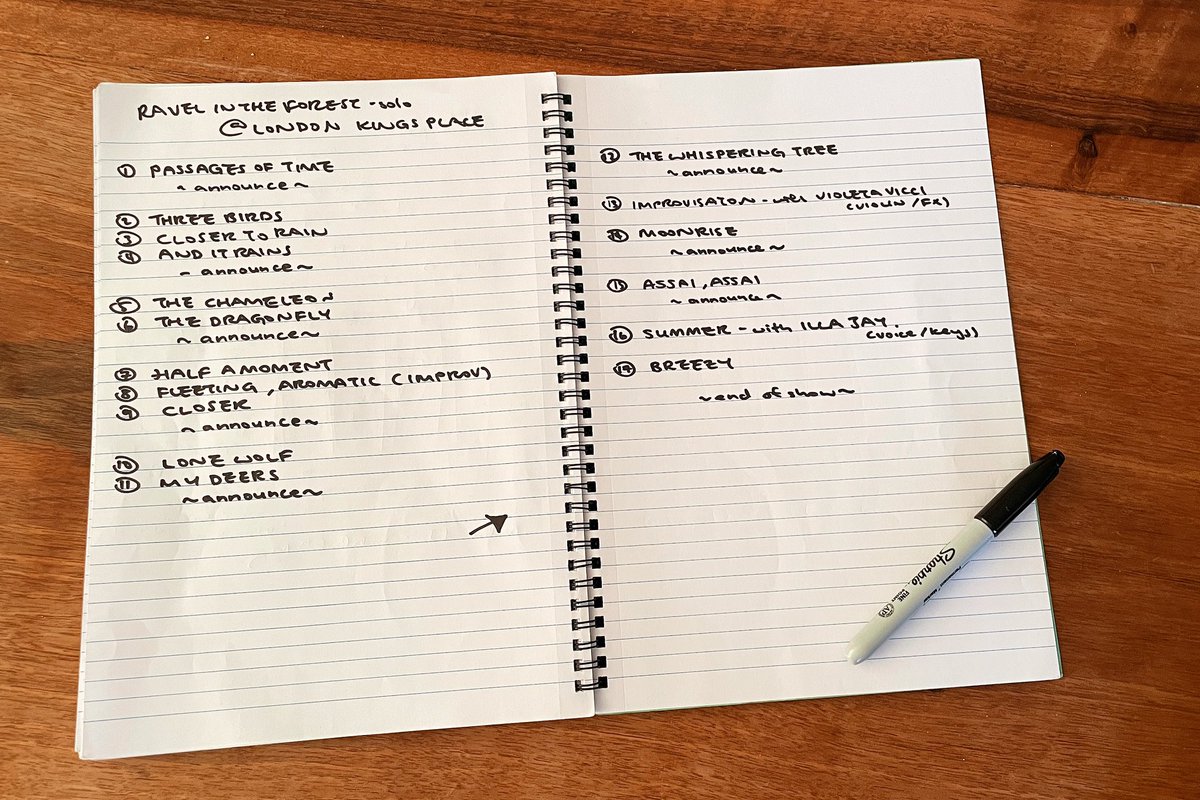 RAVEL IN THE FOREST - solo
@ LONDON KINGS PLACE
① PASSAGES OF TIME
~ announce ~
② THREE BIRDS
③ CLOSER TO RAIN
④ AND IT RAINS
~ announce ~
⑤ THE CHAMELEON
⑥ THE DRAGONFLY
~ announce ~
⑦ HALF A MOMENT
⑧ FLEETING, AROMATIC (IMPROV)
⑨ CLOSER
~ announce ~
⑩ LONE WOLF
⑪ MY DEERS
~ announce ~
⑫ THE WHISPERING TREE
~ announce ~
⑬ IMPROVISATON - with VIOLETA VICCI
(VIOLIN / FX)
⑭ MOONRISE
~ announce ~
⑮ ASSAI, ASSAI
~ announce ~
⑯ SUMMER - with ILLA JAY.
(voice / keys)
⑰ BREEZY
~ end of show ~
Sharpie
FINE
AP